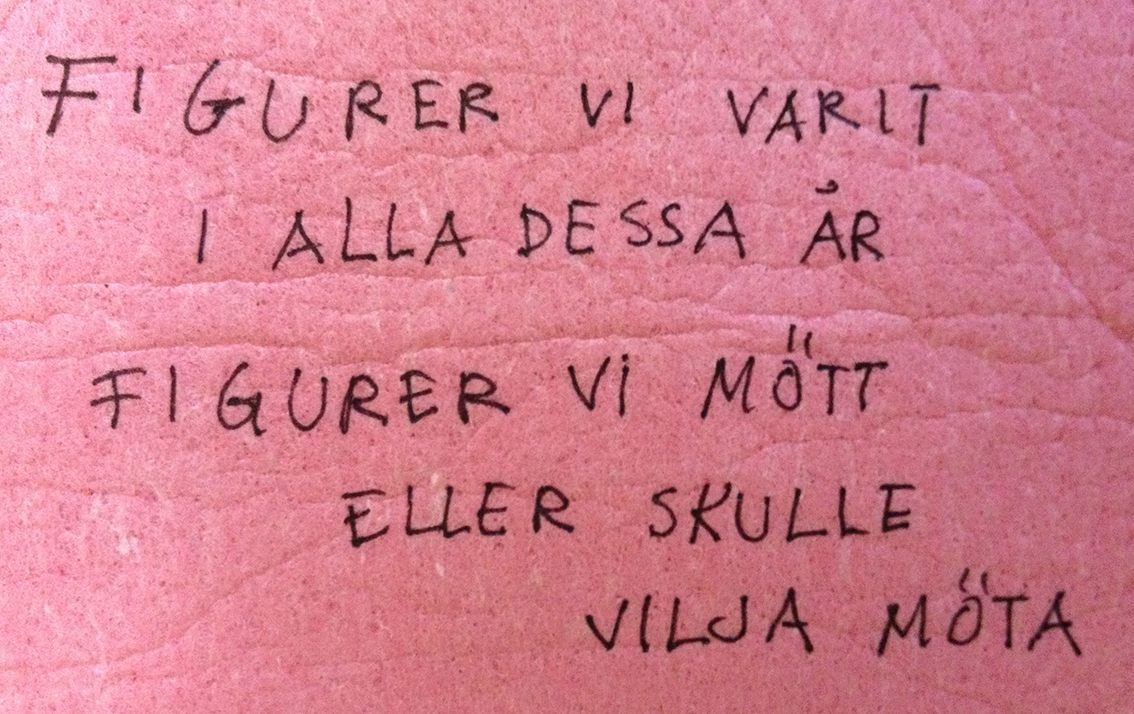 FIGURER VI VARIT
I ALLA DESSA ÅR
FIGURER VI MÖTT
ELLER SKULLE
VILJA MÖTA